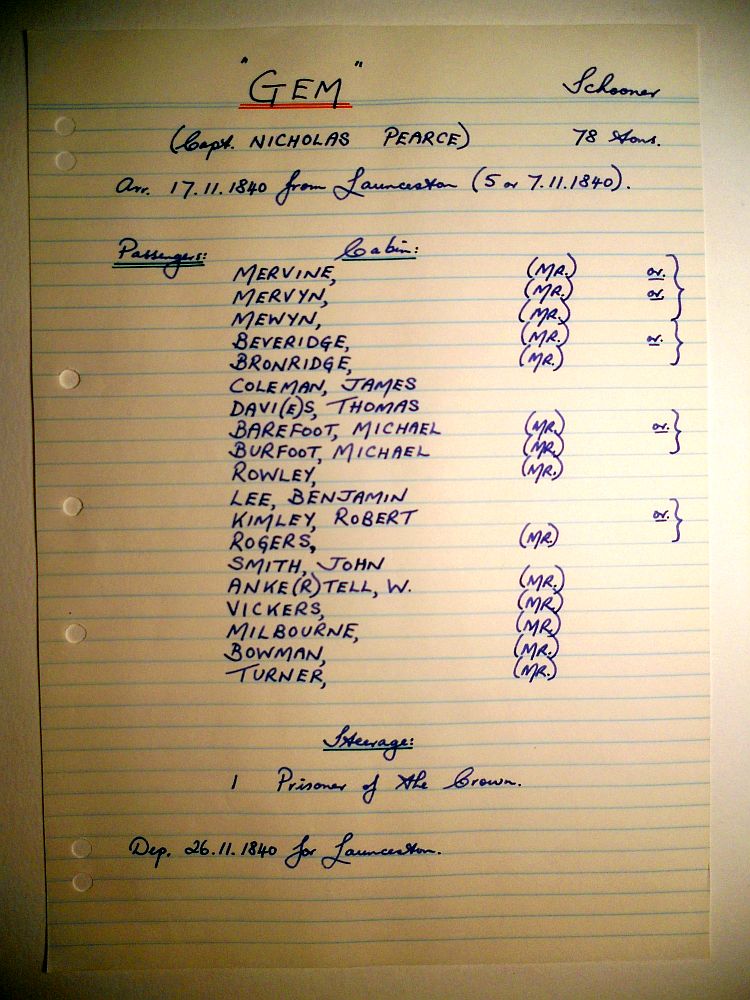 "GEM" Schooner
(Capt. NICHOLAS PEARCE) 78 tons.
Arr. 17.11.1840 from Launceston (5 or 7.11.1840).
Passengers: Cabin:
MERVINE, (MR.) or.
MERVYN, (MR.) or.
MEWYN, (MR.)
BEVERIDGE, (MR.) or.
BRONRIDGE, (MR.)
COLEMAN, JAMES
DAVI(E)S, THOMAS
BAREFOOT, MICHAEL (MR.) or.
BURFOOT, MICHAEL (MR.)
ROWLEY, (MR.)
LEE, BENJAMIN
KIMLEY, ROBERT or.
ROGERS, (MR.)
SMITH, JOHN
ANKE(R)TELL, W. (MR.)
VICKERS, (MR.)
MILBOURNE, (MR.)
BOWMAN, (MR.)
TURNER, (MR.)
Steerage:
1 Prisoner of the Crown.
Dep. 26.11.1840 for Launceston.